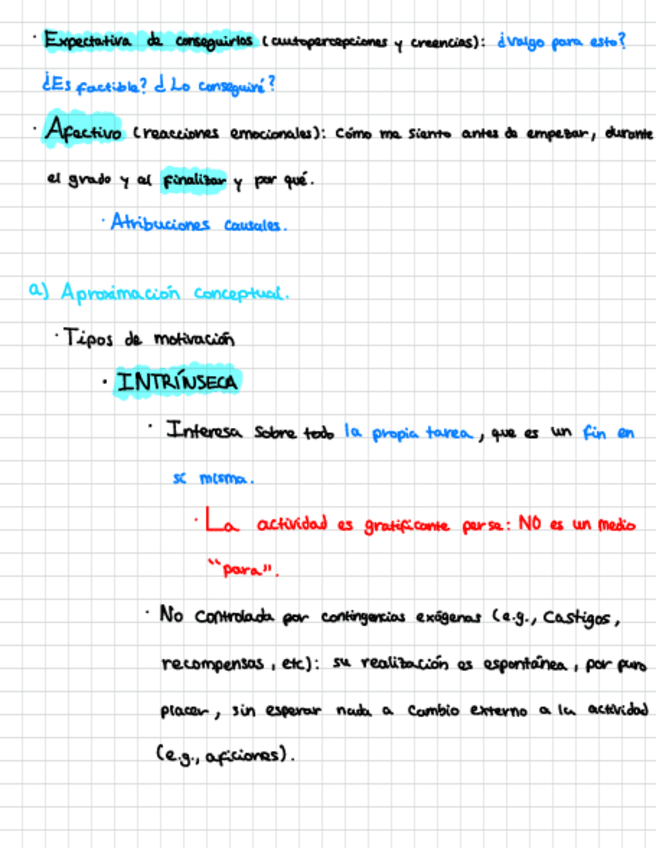 · Expectativa de conseguirlos (autopercepciones y creencias): ¿Valgo para esto?
¿Es factible? ¿Lo conseguiré?
· Afectivo (reacciones emocionales): Cómo me siento antes de empezar, durante
el grado y al finalizar y por qué.
· Atribuciones causales.
a) Aproximación conceptual.
· Tipos de motivación
· INTRÍNSECA
· Interesa sobre todo la propia tarea, que es un fin en
sí misma.
· La actividad es gratificante per se: NO es un medio
"para".
· No controlada por contingencias exógenas (e.g., Castigos,
recompensas, etc): su realización es espontánea, por puro
placer, sin esperar nada a cambio externo a la actividad
(e.g., aficiones).